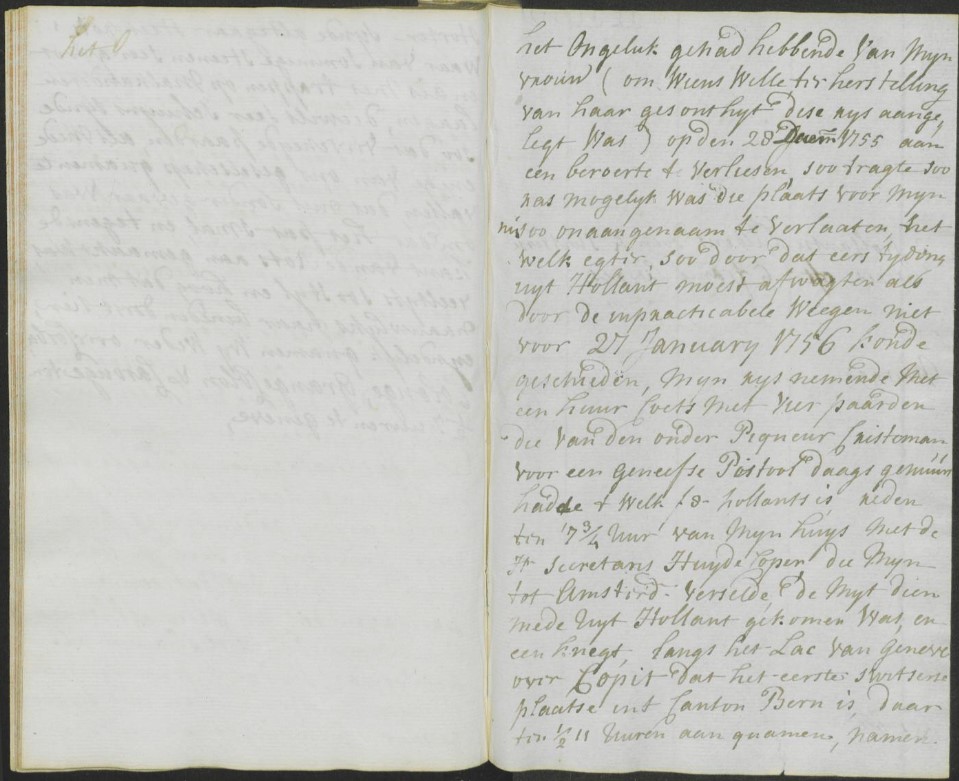 het
het Ongeluk gehad hebbende Van Myn
vrouw ( om Wiens Welle ter herstelling
van haar gesonthyt dese rys aange
legt Was ) op den 28 Decem 1755 aan
een beroerte te verliesen, soo tragte soo
ras mogelyk was die plaats voor Myn
nu soo onaangenaam te verlaaten, het
welk egter, soo door dat eers tyding
uyt Hollant moest afwagten als
door de inpracticabele Weegen niet
voor 27 January 1756 konde
geschieden, Myn rys nemende Met
een huur Coets Met Vier paarden
die Van den onder Piqueur Cristeman
voor een Geneefse Pistool daags gehuurt
hadde t Welk f 8- hollants is reden
ten 7 3/4 Uur van Myn huys Met de
Hr Secretaris Huyde Coper die Myn
tot Amsterd. Verselde de Myt dien
mede Uyt Hollant gekomen Was, en
een knegt, langs het Lac Van Geneve
over Copit dat het eerste switserse
plaatse int Canton Bern is, daar
ten 1/2 11 Uuren aan quamen, namen